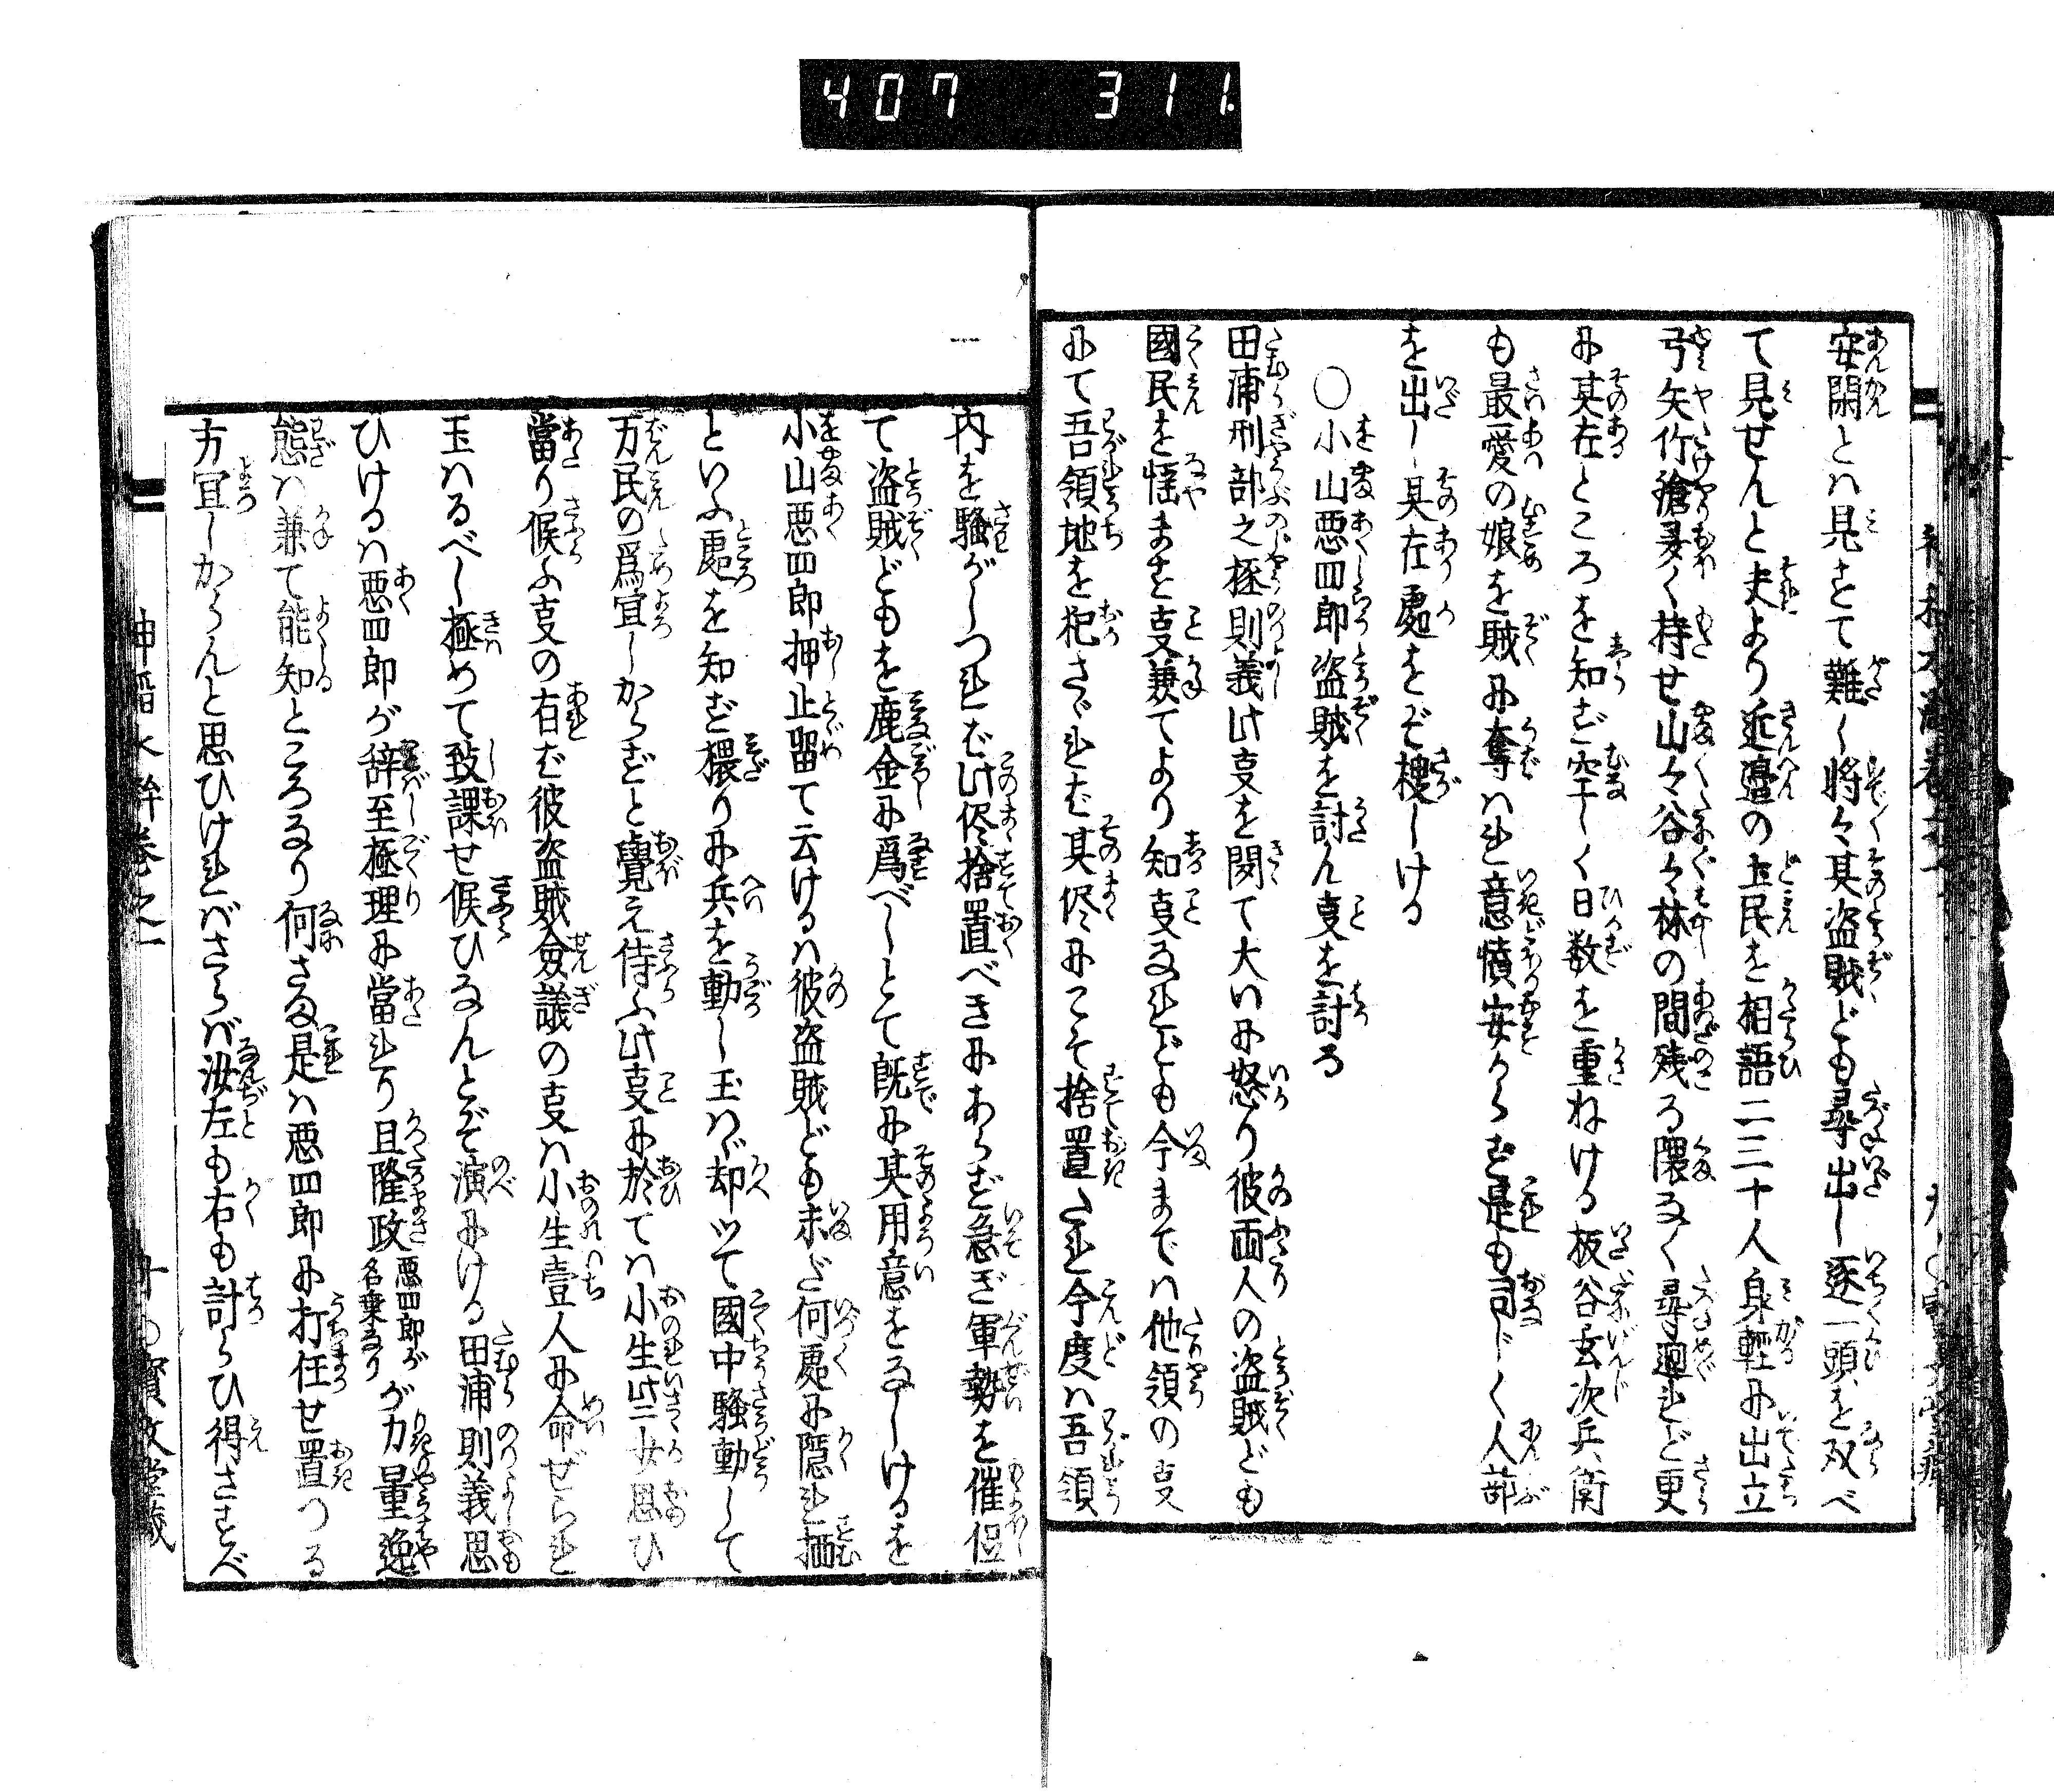 407 311.
安閑とハ見すて難く將々其盗賊ども尋出し逐一頭を双べ
て見せんと夫より近邉の土民を相語二三十人身輕に出立
弓矢竹鎗夛く持せ山々谷々林の間残る隈なく尋廻れど更
に其在ところを知ず空しく日数を重ねける板谷玄次兵衛
も最愛の娘を賊に奪ハれ意憤安からず是も司じく人部
を出し其在處をぞ捜しける
○小山悪四郎盗賊を討ん叓を討る
田浦刑部之極則義此叓を聞て大いに怒り彼両人の盗賊ども
國民を悩ます叓兼てより知叓なれども今までハ他領の叓
にて吾領地を犯さゞれば其侭にこそ捨置たれ今度ハ吾領
内を騒がしつれば此侭捨置べきにあらず急ぎ軍勢を催促し
て盗賊どもを鹿金に爲べしとて既に其用意をなしけるを
小山悪四郎押止留て云けるハ彼盗賊ども未だ何處に隠れ栖
といふ處を知ず猥りに兵を動し玉ハゞ却ツて國中騒動して
万民の爲宜しからずと覺え侍ふ此叓に於てハ小生此二女思ひ
當り候ふ叓の有ば彼盗賊僉議の叓ハ小生壹人に命ぜられ
玉ハるべし極めて致課せ候ひなんとぞ演にける田浦則義思
ひけるハ悪四郎が辞至極理に當れり且隆政
悪四郎が
名乗なり
が力量逸
態ハ兼て能知ところなり何さな是ハ悪四郎に打任せ置つる
方宜しからんと思ひければさらば汝左も右も計らひ得さすべ
神稻水滸巻之一
寳文堂藏